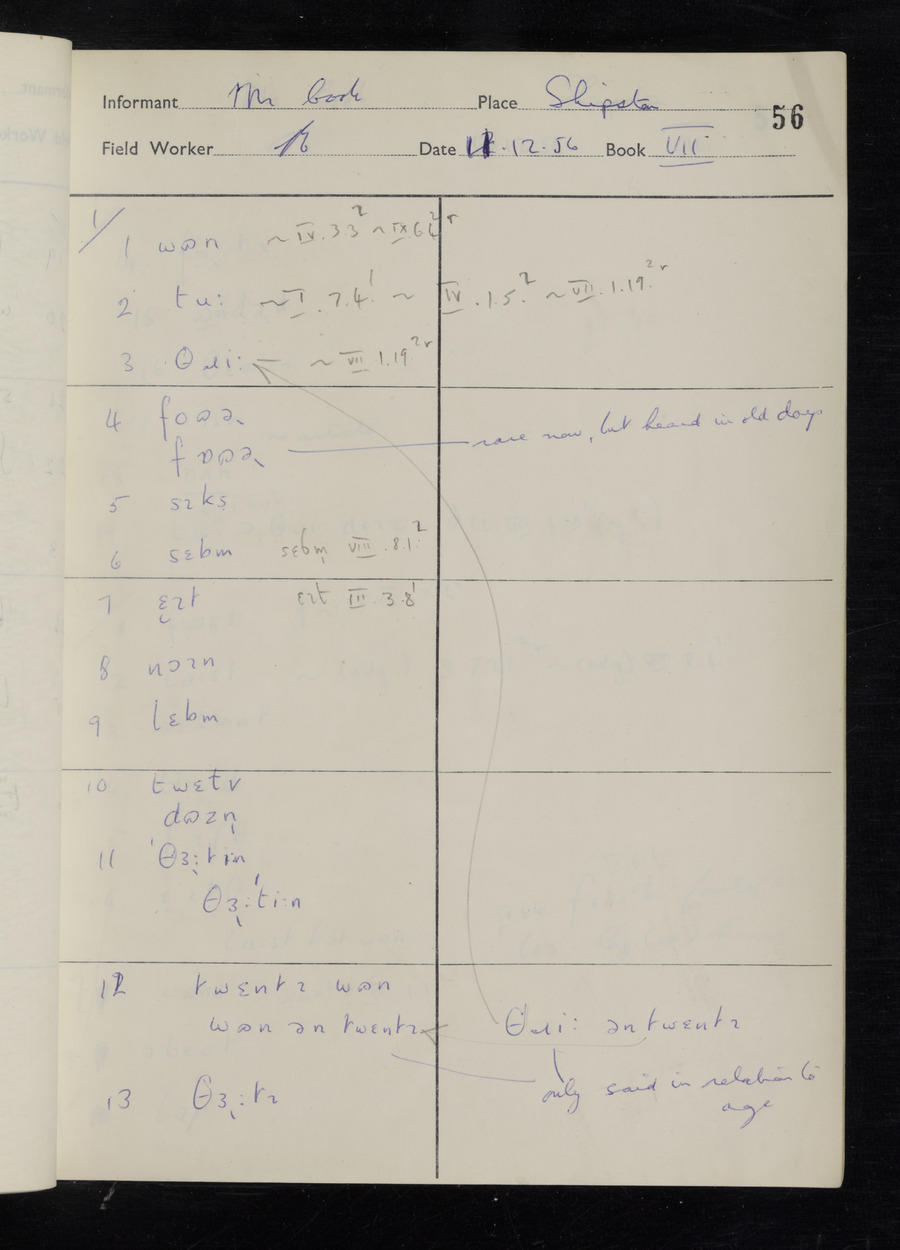 Informant Mr Cook Place Shipston 56
Field Worker Date 11.12.56 Book VII
1/
1 wɒn ~ IV.3.3² ~ IX
2 tu: ~ I.7.4.¹ ~ IV.1.5.² ~ VII.1.19.²ʳ
3 θɹi: ~ VII 1.19²ʳ
4 foʊə˞
fɒʊə˞ rare now, but heard in old days
5 sɪks
6 sɛbm sɛbm̩ VIII.8.1.²
7 ɛɪt ɛɪt III.3.8¹
8 nɔɪn
9 lɛbm
10 twɛtv
dɒzn̩
11 ˈθɜ˞:tin
θɜ˞:ˈti:n
12 twɛntɪ wɒn
wɒn ən twentɪ θɹi: ən twɛntɪ
only said in relation to
age
13 θɜ˞:tɪ